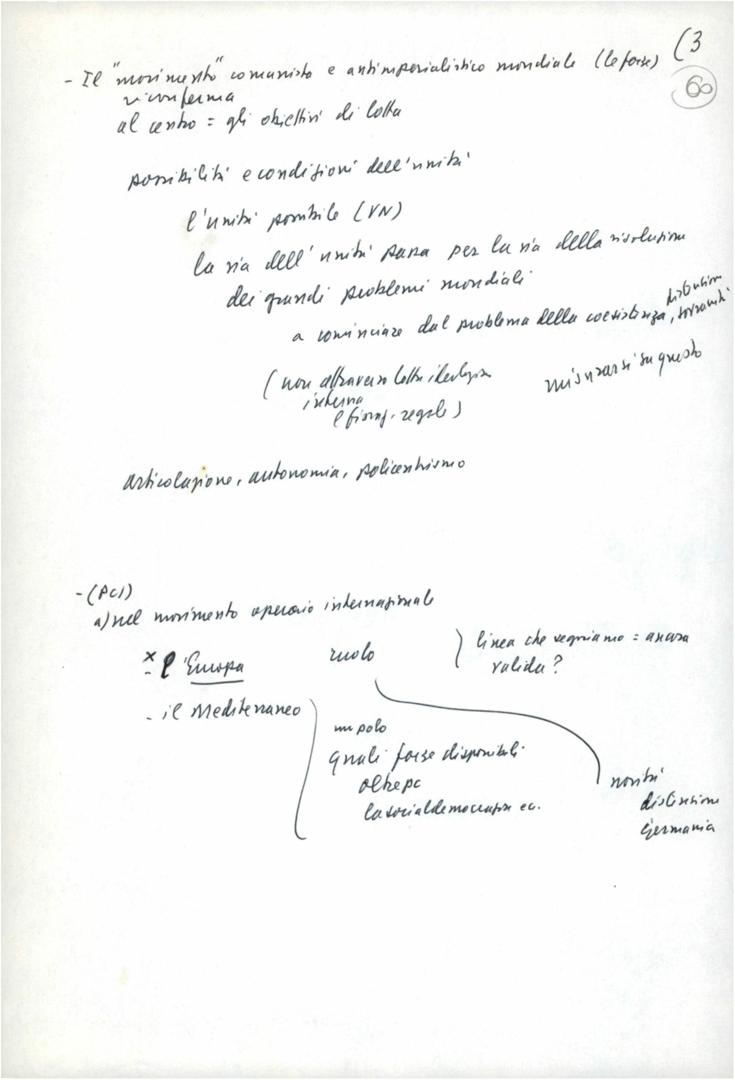 (3
60
- Il "movimento" comunista e antimperialistico mondiale (le forze)
riconferma
al centro = gli obiettivi di lotta
possibilità e condizioni dell'unità
l'unità possibile (VN)
la via dell'unità passa per la via della risoluzione
dei grandi problemi mondiali
a cominciare dal problema della coesistenza, distensione, sovranità
(non attraverso lotta ideologica misurarsi su questo
interna
e fissaz. regole)
articolazione, autonomia, policentrismo
- (PCI)
a) nel movimento operaio internazionale
x - l'Europa ruolo ) linea che seguiamo = ancora
valida?
- il Mediterraneo )
un polo
quali forze disponibili
oltre pc
la socialdemocrazia ec.
novità
distensione
Germania